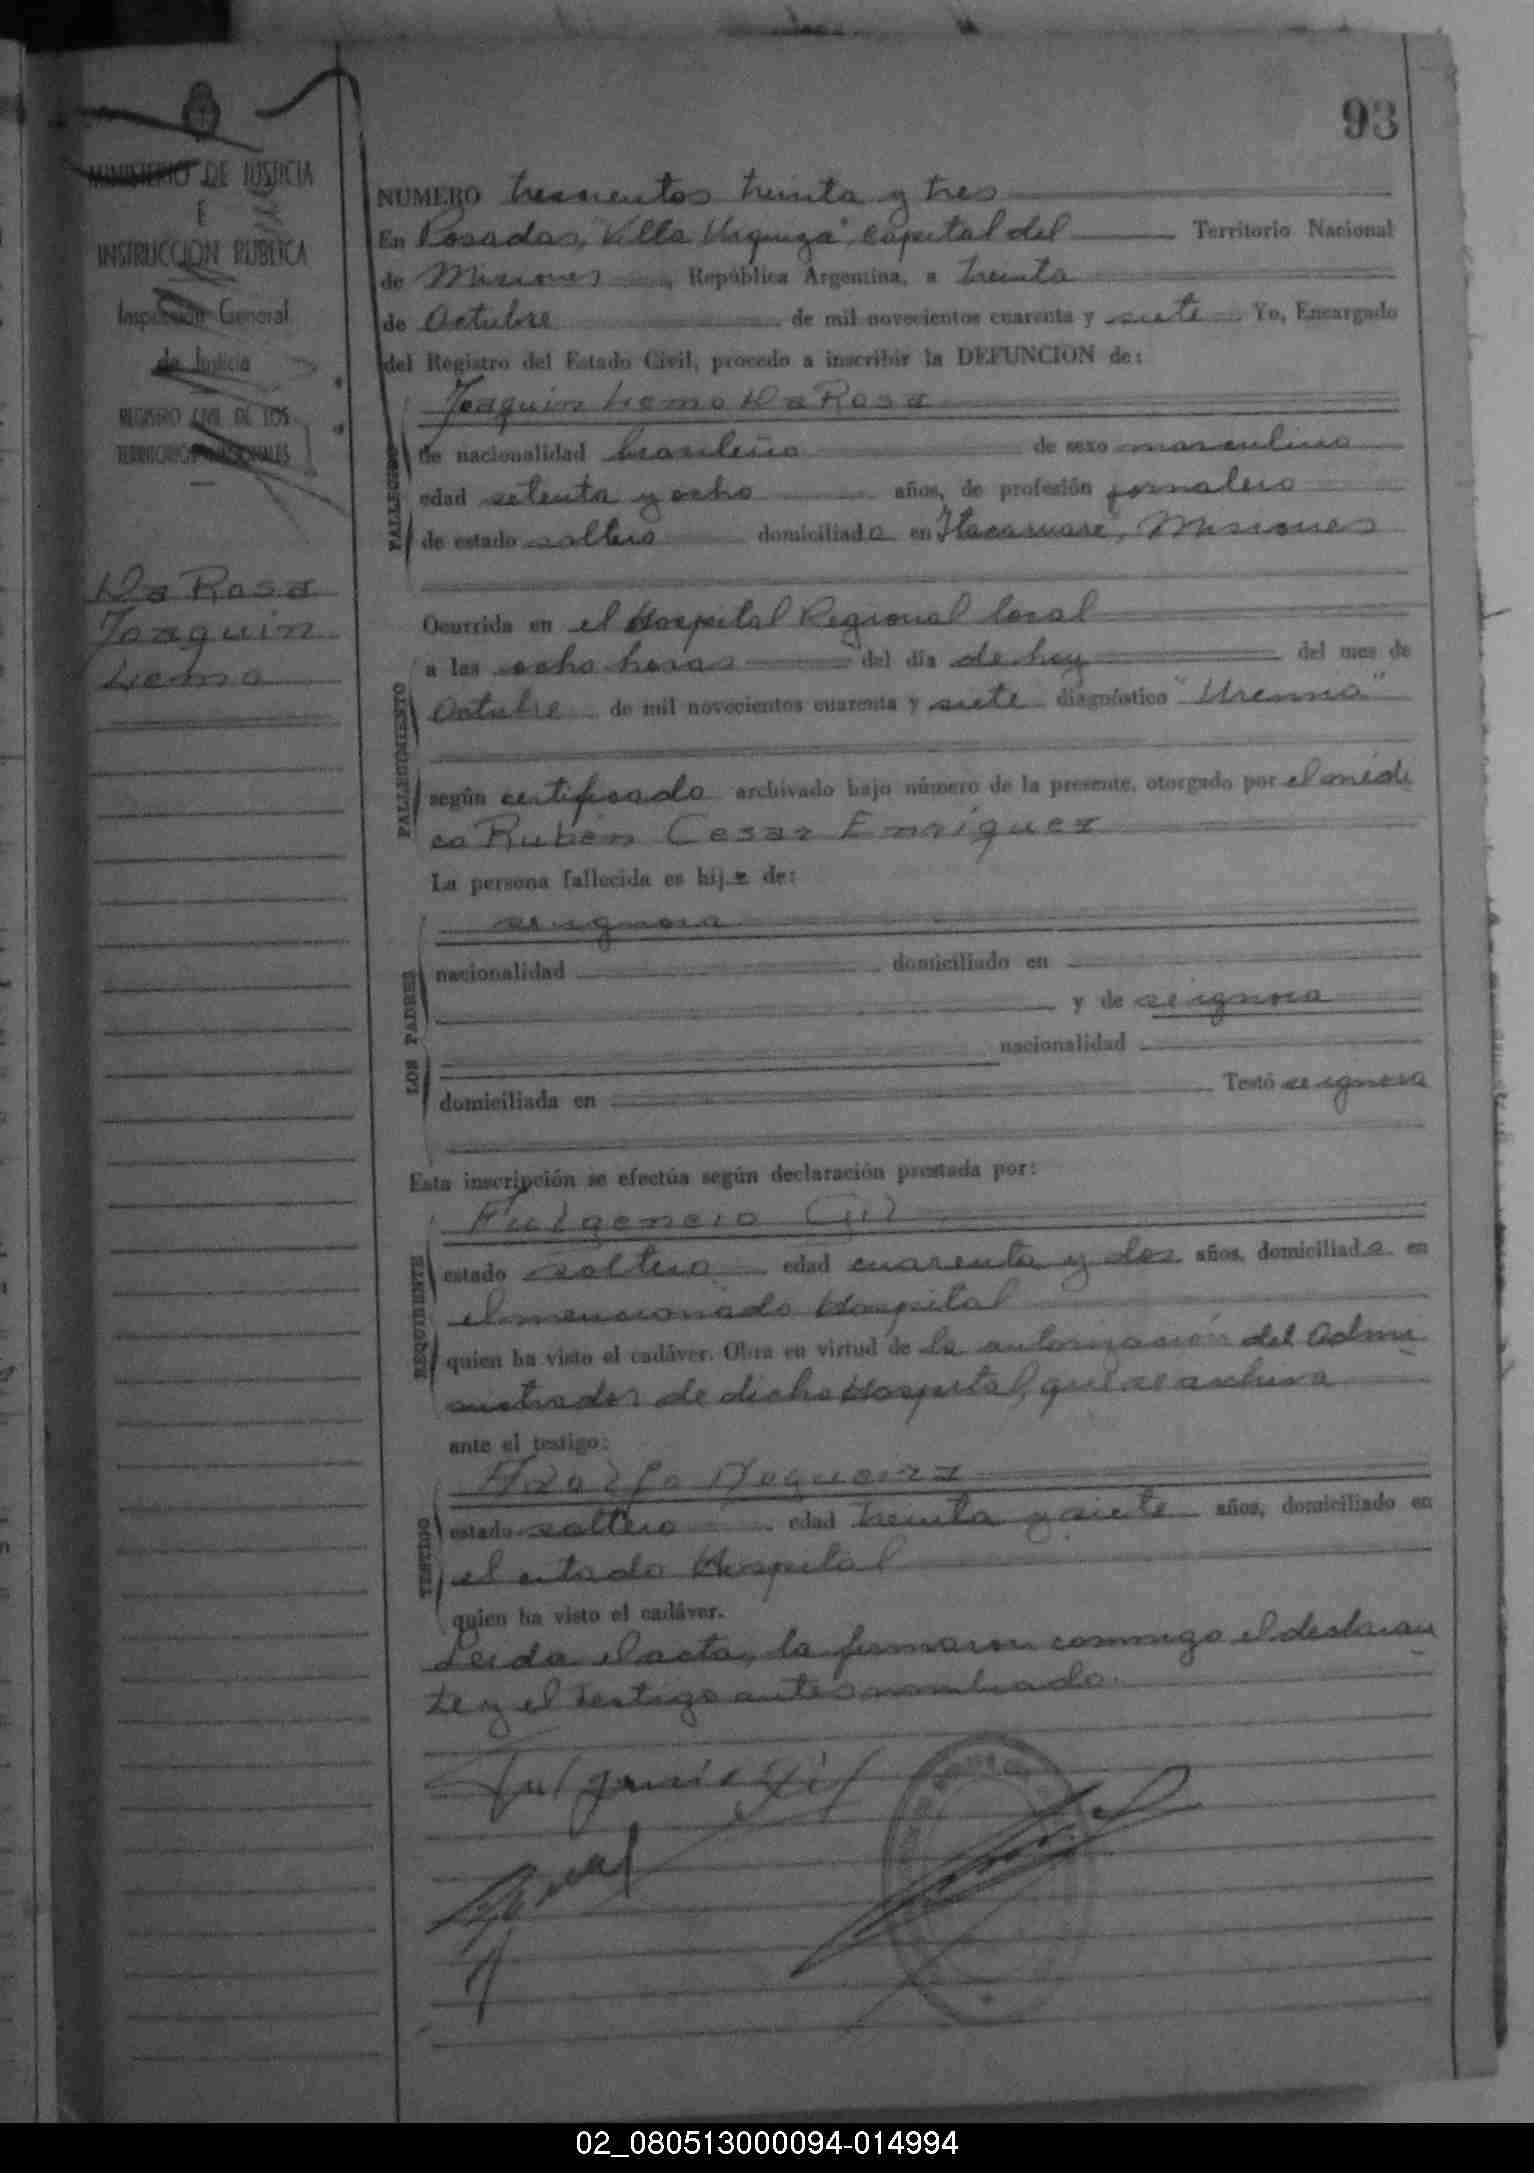 93
MINISTERIO DE JUSTICIA
É
INSTRUCCION PUBLICA
Inspección General
de Justicia
REGISTRO CIVIL DE LOS
TERRITORIOS NACIONALES
Da Rosa
Joaquin
Lemo
NUMERO trescientos treinta y tres
En Posadas, "Villa Urquiza", capital del Territorio Nacional
de Misiones, República Argentina, a treinta
de Octubre de mil novecientos cuarenta y siete Yo, Encargado
del Registro del Estado Civil, procedo a inscribir la DEFUNCION de:
FALLECIDO
Joaquin Lemo Da Rosa
de nacionalidad brasileño de sexo masculino
edad setenta y ocho años, de profesión jornalero
de estado soltero domiciliado en Itacaruaré, Misiones
FALLECIMIENTO
Ocurrida en el Hospital Regional local
a las ocho horas del día de hoy del mes de
Octubre de mil novecientos cuarenta y siete diagnóstico "Uremia"
según certificado archivado bajo número de la presente, otorgado por el médi
co Rubén Cesar Enríquez
La persona fallecida es hijo de:
LOS PADRES
se ignora
nacionalidad domiciliado en
y de se ignora
nacionalidad
domiciliada en Testó se ignora
Esta inscripción se efectúa según declaración prestada por:
REQUIRENTE
Fulgencio Gil
estado soltero edad cuarenta y dos años, domiciliado en
el mencionado Hospital
quien ha visto el cadáver. Obra en virtud de la autorización del Admi
nistrador de dicho Hospital, que se archiva
ante el testigo:
TESTIGO
Adolfo Nogueira
estado soltero edad treinta y siete años, domiciliado en
el citado Hospital
quien ha visto el cadáver.
Leida el acta, la firmaron conmigo el declaran
te y el testigo antes nombrado.
Fulgencio Gil
02_080513000094-014994